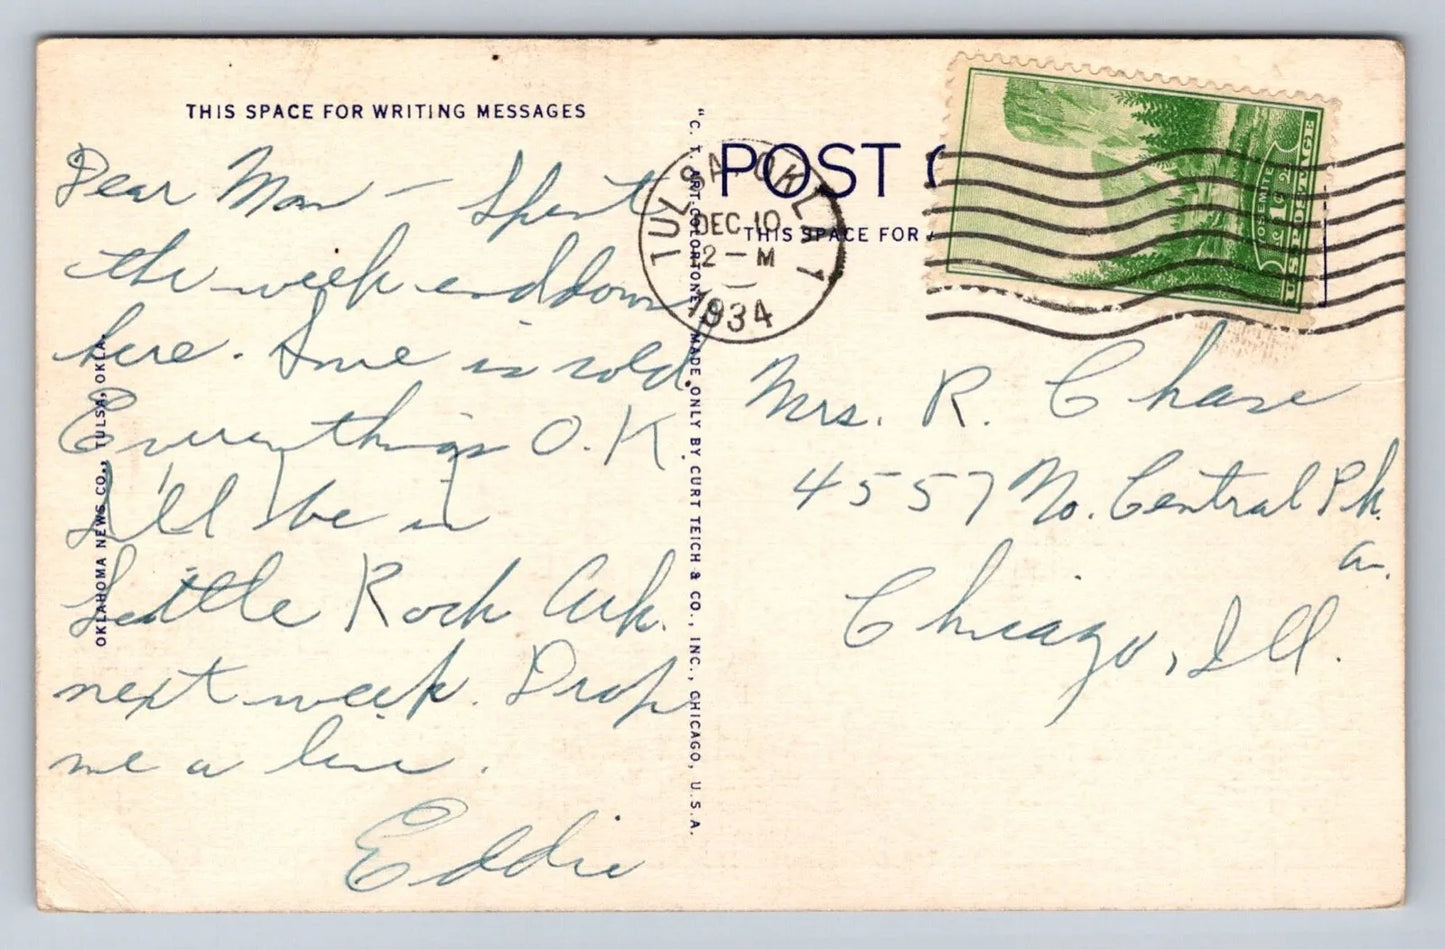 THIS SPACE FOR WRITING MESSAGES
Dear Mom – Spent
the week end down
here. Love is sold.
Everything O.K.
I'll be in
Little Rock Ark.
next week. Drop
me a line.
Eddie
OKLAHOMA NEWS CO., TULSA, OKLA.
"C. T. ART-COLORTONE" MADE ONLY BY CURT TEICH & CO., INC., CHICAGO, U.S.A.
POST C
THIS SPACE FOR
TULSA OKLA. 1
DEC 10
2 – M
1934
YOSEMITE
1¢
U.S. POSTAGE
Mrs. R. Chase
4557 No. Central Pk.
av.
Chicago, Ill.